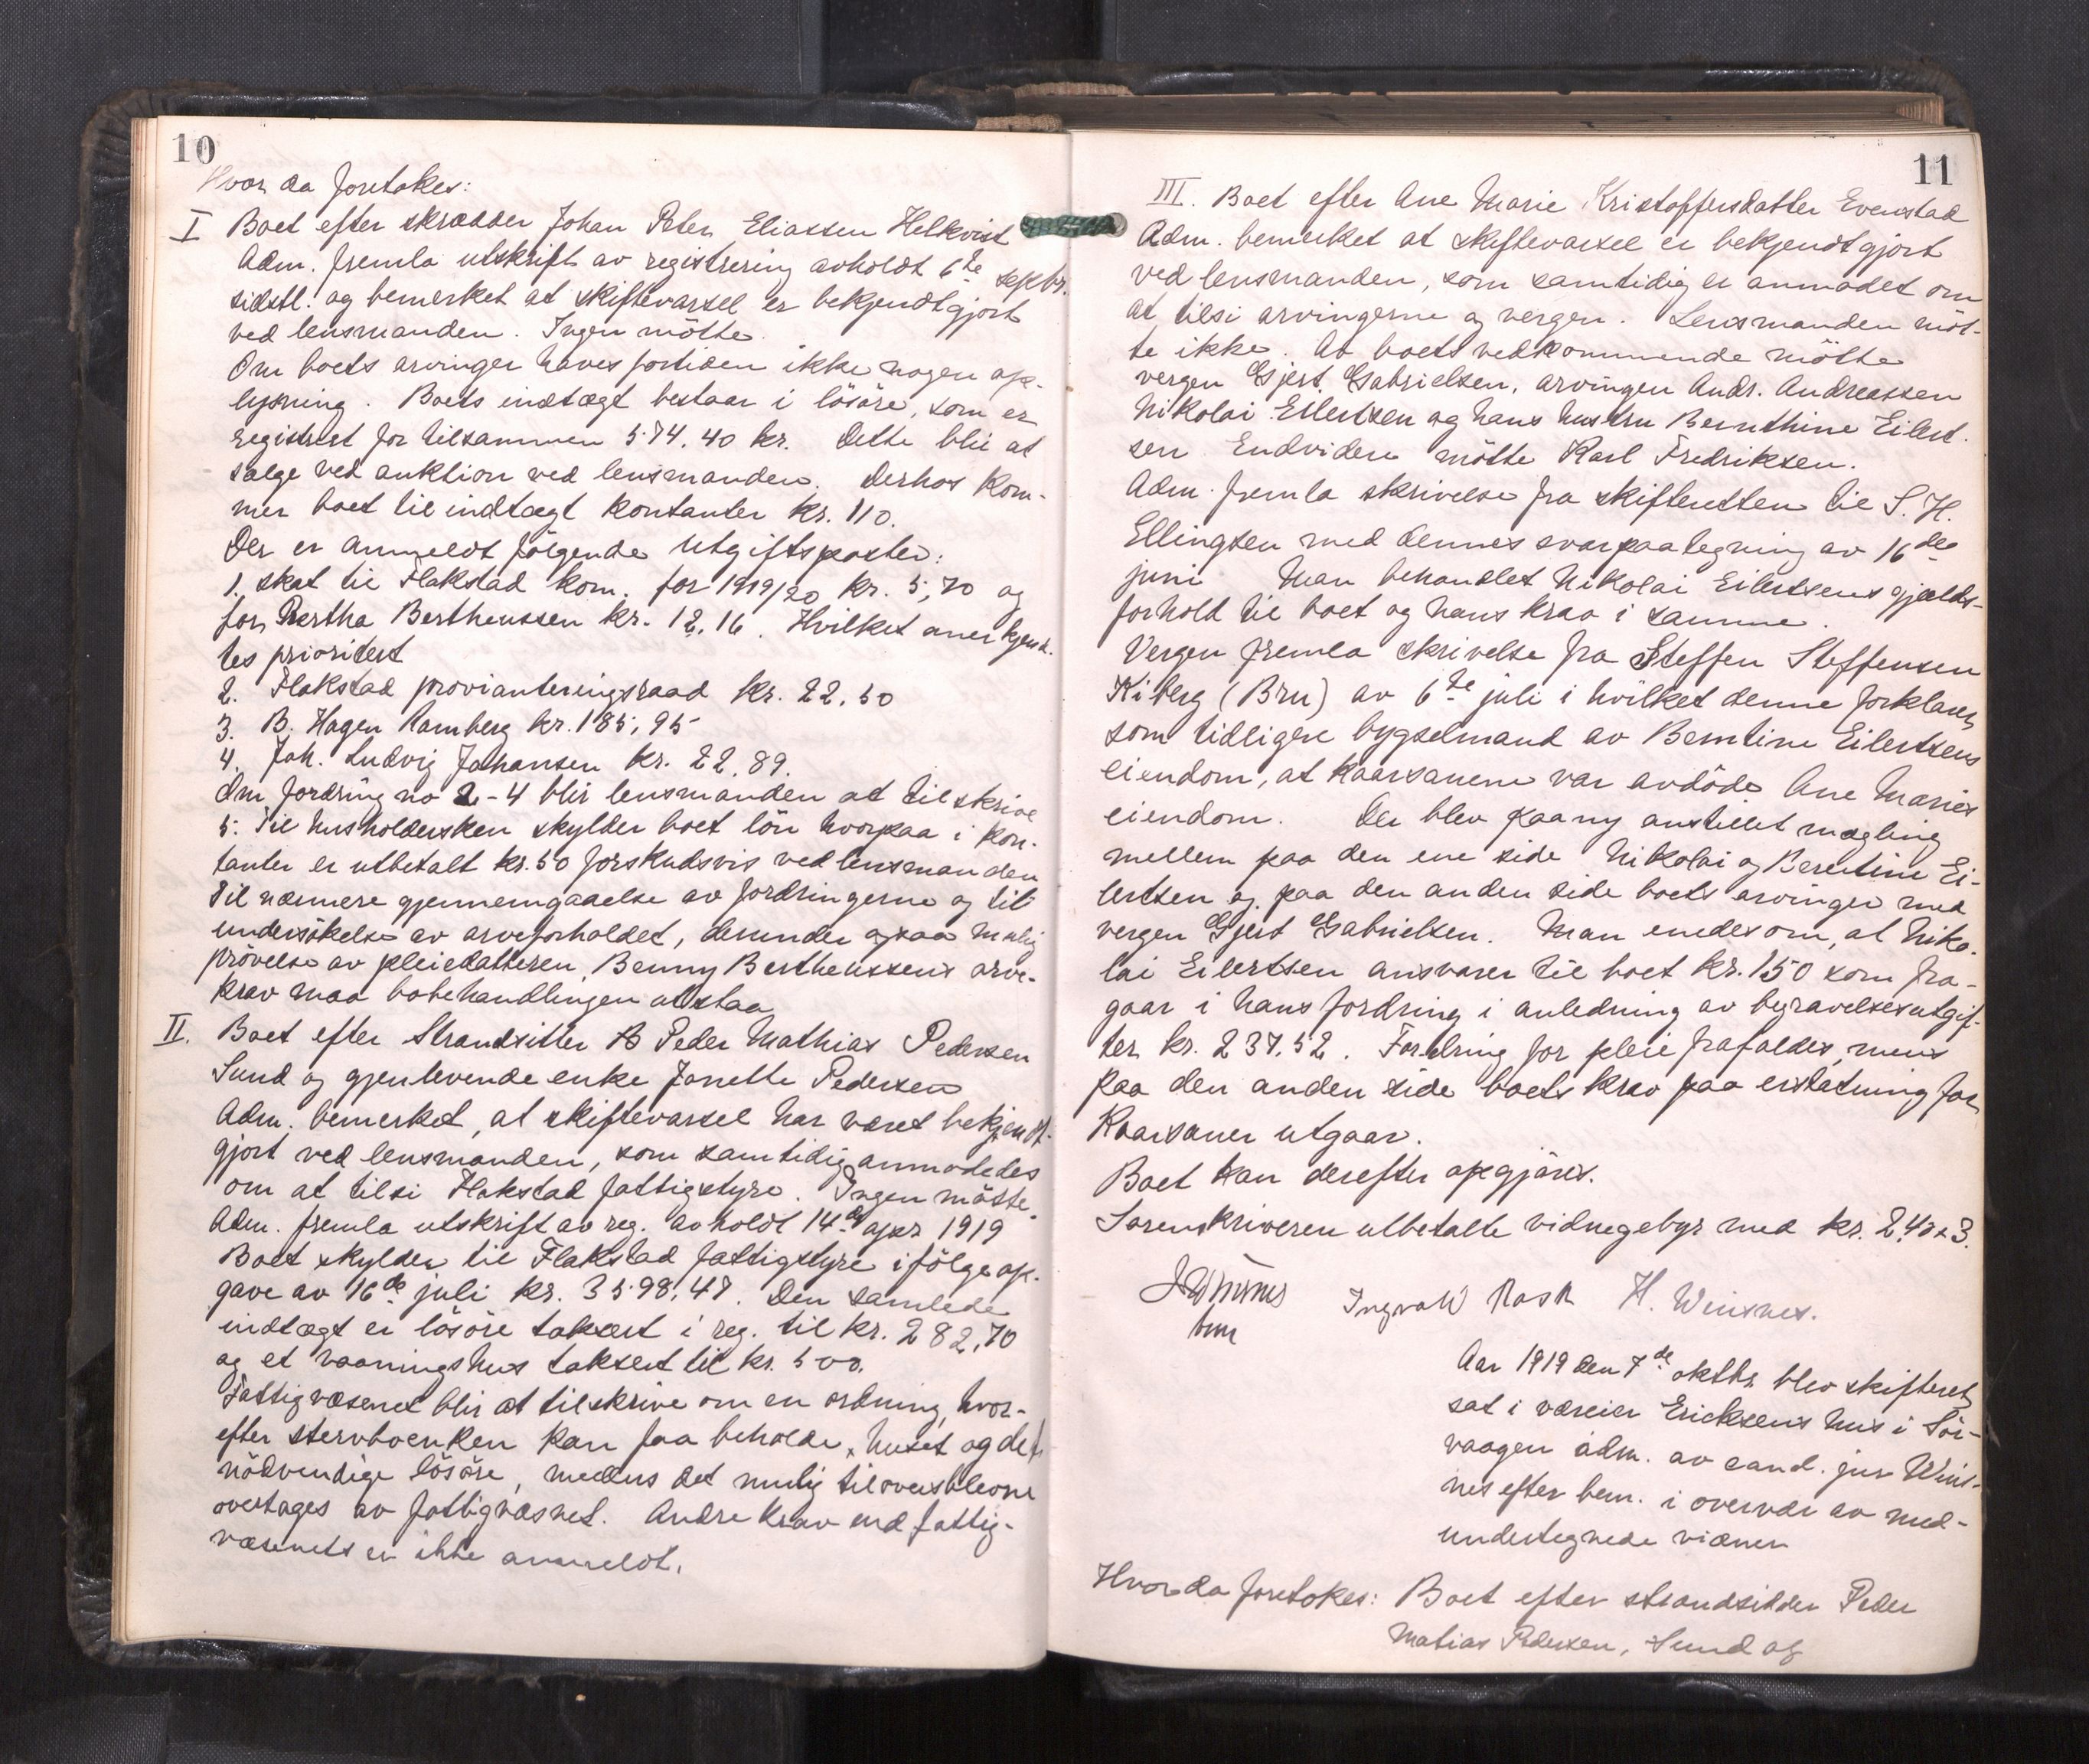 10
Hvor da foretokes:
I Boet efter skrædder Johan Peter Eliassen Helkvist
Adm. fremla utskrift av registrering avholdt 6te septbr.
sidstl. og bemerket at skiftevarsel er bekjendtgjort
ved lensmanden. Ingen mötte.
Om boets arvinger haves fortiden ikke nogen op-
lysning. Boets indtægt bestaar i lösöre, som er
registrert for tilsammen 574.40 kr. Dette blir at
sælge ved auktion ved lensmanden. Derhos kom-
mer boet til indtægt kontanter kr. 110.
Der er anmeldt fölgende utgiftsposter:
1. skat til Flakstad kom. for 1919/20 kr. 5,70 og
for Bertha Bertheussen kr. 12.16. Hvilket anerkjend-
tes prioritert
2. Flakstad provianteringsraad kr. 22.50
3. B. Hagen Ramberg kr. 185,95
4. Joh. Ludvig Johansen kr. 22.89.
Om fordring no 2-4 blir lensmanden at tilskrive
5. Til husholdersken skylder boet lön hvorpaa i kon-
tanter er utbetalt kr. 50 forskudsvis ved lensmanden
Til nærmere gjennemgaaelse av fordringerne og til
undersökelse av arveforholdet, derunder ogsaa mulig
prövelse av pleiedatteren Benny Bertheussens arve-
krav maa bobehandlingen utstaa
II. Boet efter Strandsitter Peder Mathias Pedersen
Sund og gjenlevende enke Janette Pedersen
Adm. bemerket, at skiftevarsel har været bekjendt-
gjort ved lensmanden, som samtidig anmodedes
om at tilsi Flakstad fattigstyre. Ingen mötte.
Adm. fremla utskrift av reg. avholdt 14de apr 1919
Boet skylder til Flakstad fattigstyre ifölge op-
gave av 16de juli kr. 3598,47. Den samlede
indtægt er lösöre taksert i reg. til kr. 282,70
og et vaaningshus taksert til kr. 500.
Fattigvæsenet blir at tilskrive om en ordning, hvor-
efter stervboenken kan faa beholde huset og det
nödvendige lösöre, medens det mulig tiloversblevne
overtages av fattigvæsnet. Andre krav end fattig-
væsenets er ikke anmeldt.
11
III. Boet efter Ane Marie Kristoffersdatter Evenstad
Adm. bemerket at skiftevarsel er bekjendtgjort
ved lensmanden, som samtidig er anmodet om
at tilsi arvingerne og vergen. Lensmanden möt-
te ikke. Av boets vedkommende mötte
vergen Gjert Gabrielsen, arvingen Andr. Andreassen
Nikolai Eilertsen og hans hustru Bernthine Eilert-
sen Endvidere mötte Karl Fredriksen.
Adm. fremla skrivelse fra skifteretten til S. H.
Ellingsen med dennes svarpaategning av 16de
juni Man behandlet Nikolai Eilertsens gjælds-
forhold til boet og hans krav i samme.
Vergen fremla skrivelse fra Steffen Steffensen
Kiberg (Bru) av 6te juli i hvilket denne forklarer
som tidligere bygselmand av Berntine Eilertsens
eiendom, at kaarsauene var avdöde Ane Maries
eiendom. Der blev paany anstillet mægling
mellem paa den ene side Nikolai og Berentine Ei-
lertsen og paa den anden side boets arvinger med
vergen Gjert Gabrielsen. Man enedes om, at Niko-
lai Eilertsen ansvarer til boet kr. 150 som fra-
gaar i hans fordring i anledning av begravelsesutgif-
ter kr. 237.52. Fordring for pleie frafaldes, mens
paa den anden side boets krav paa erstatning for
Kaarsauer utgaar.
Boet kan derefter opgjöres.
Sorenskriveren utbetalte vidnegebyr med kr. 2,40 x 3.
Ingvald Rask H. Weisnes.
Aar 1919 den 7de oktbr blev skifteret
sat i væreier Ericksens hus i Sör-
vaagen adm. av cand. jur Wins-
nes efter bem. i overvær av med-
undertegnede vidner
Hvor da foretokes: Boet efter strandsidder Peder
Matias Pedersen, Sund og